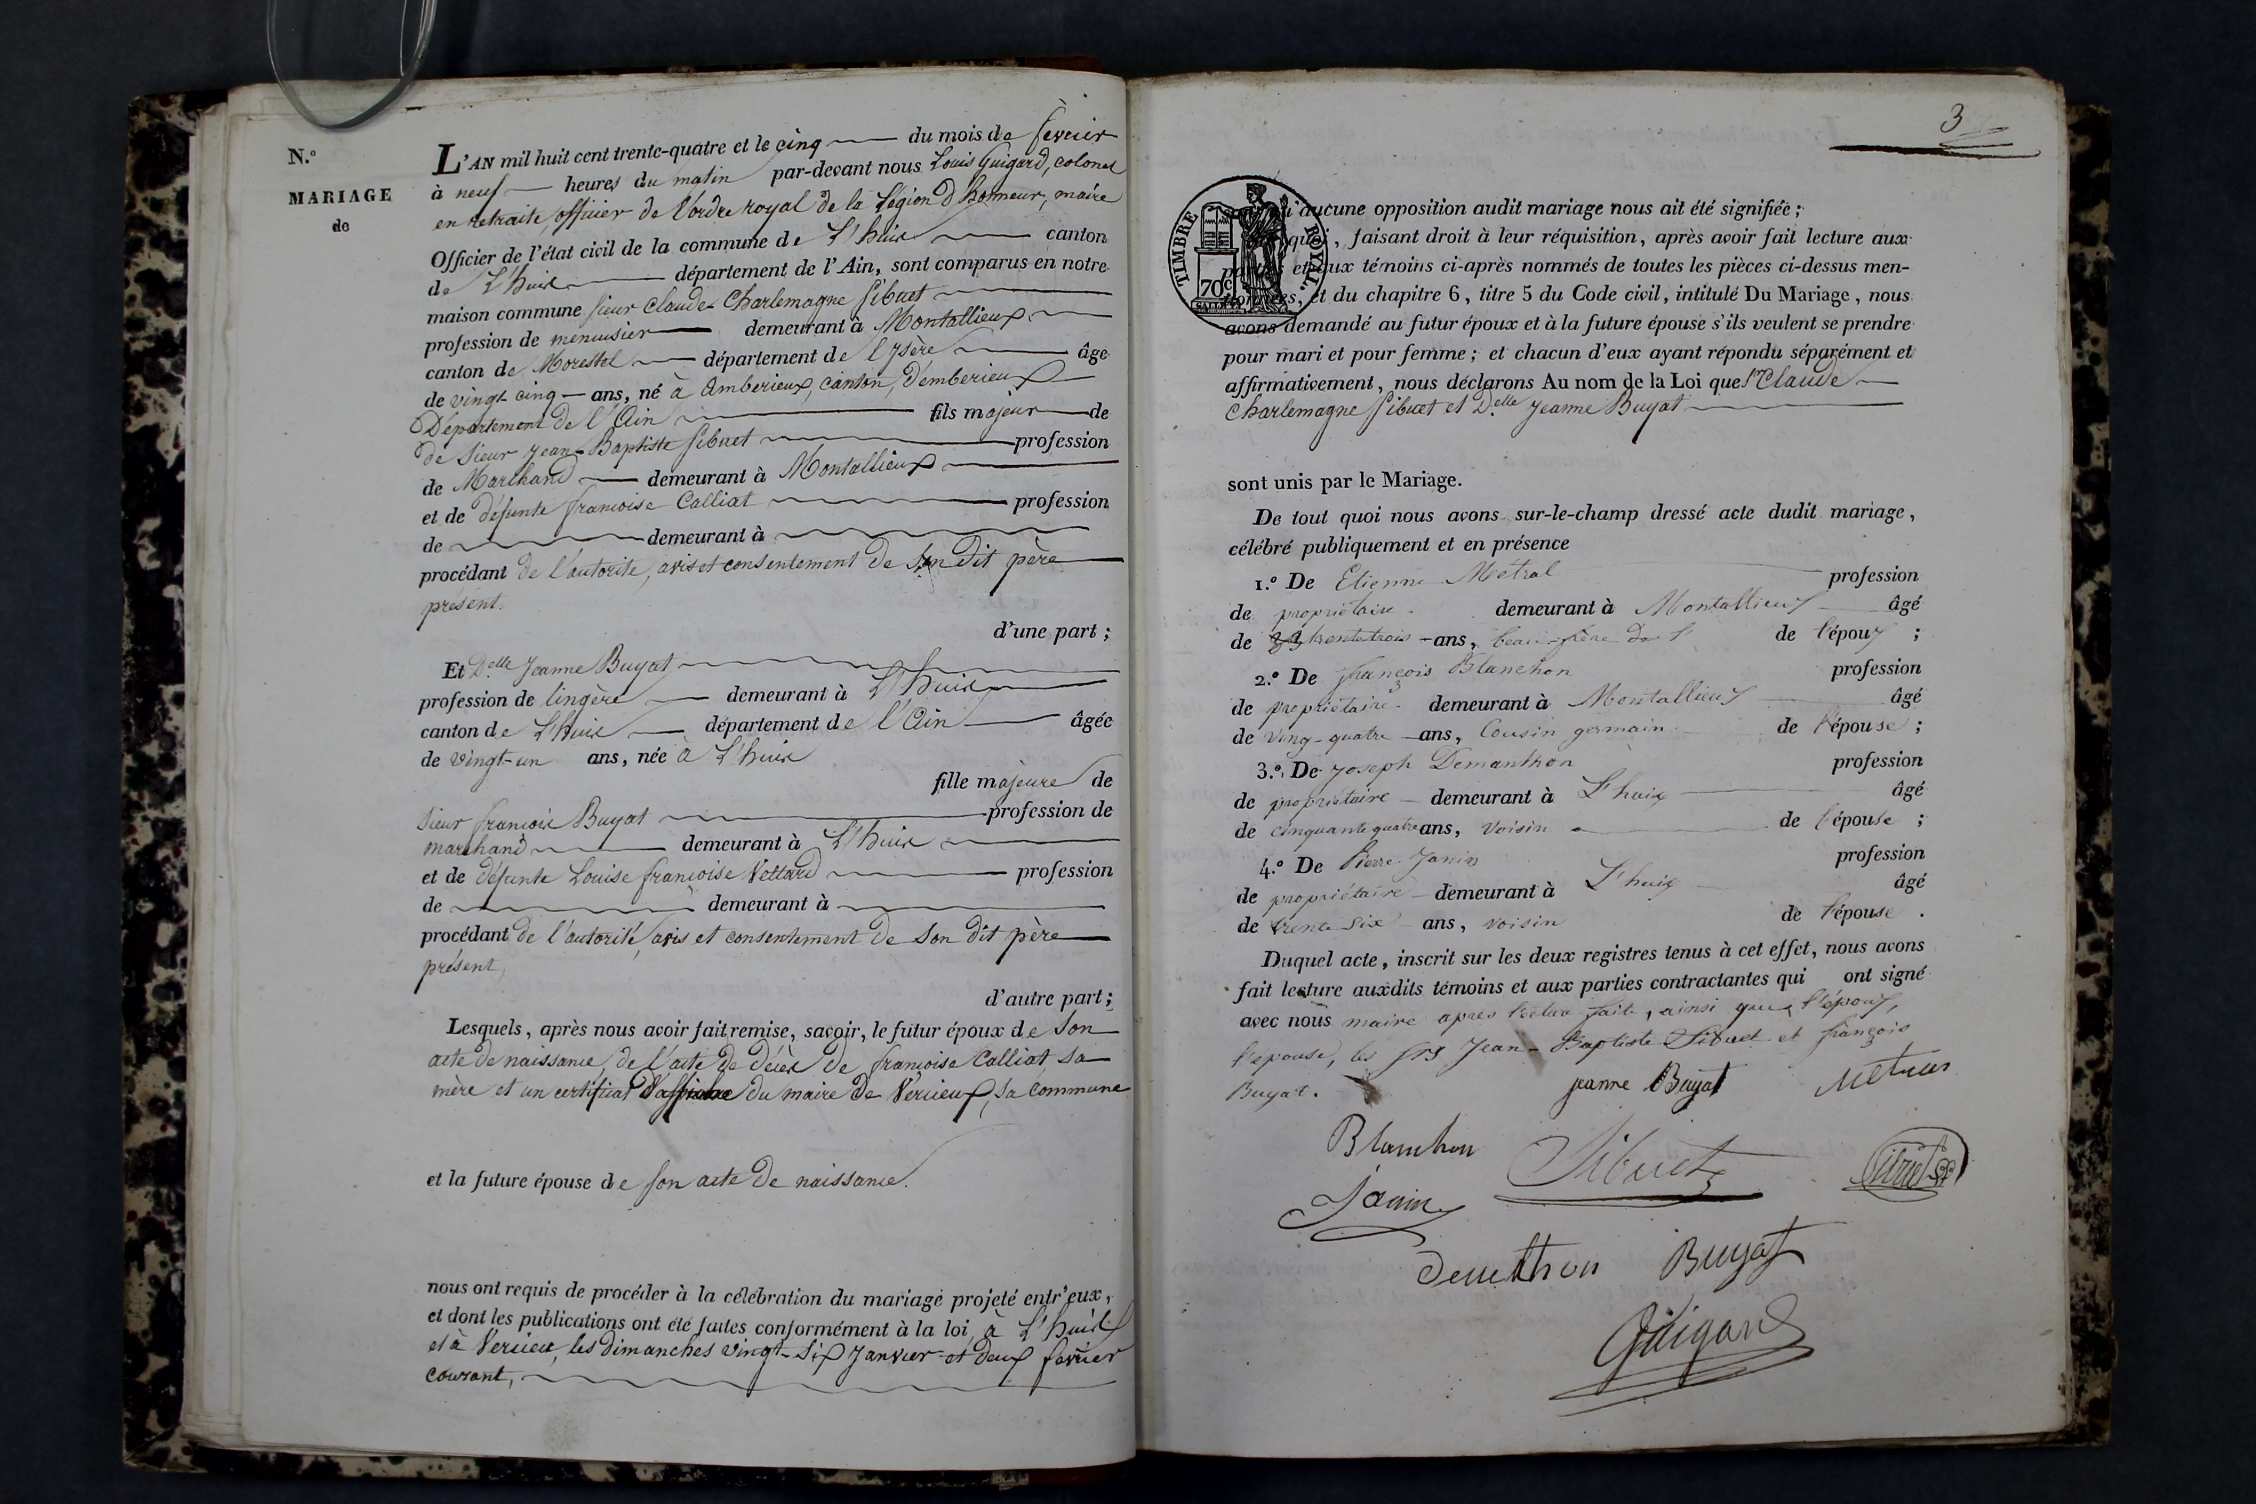 N.o
MARIAGE
de
L'AN mil huit cent trente-quatre et le cinq du mois de fevrier
à neuf heures du matin par-devant nous Louis Guigard, colonel
en retraite, officier de l'ordre royal de la Légion d'honneur, maire
Officier de l'état civil de la commune de L'huis canton
de L'huis département de l'Ain, sont comparus en notre
maison commune sieur Claude-Charlemagne Sibuet
profession de menuisier demeurant à Montallieux
canton de Morestel département de l'Ysère âgé
de vingt cinq ans, né à Amberieux, canton d'emberieux
Département de l'Ain fils majeur de
de sieur Jean-Baptiste Sibuet profession
de Marchand demeurant à Montallieux
et de défunte françoise Calliat profession
de demeurant à
procédant de l'autorité, avis et consentement de son dit père
présent.
d'une part ;
Et D.elle Jeanne Buyat
profession de lingère demeurant à L'huis
canton de L'huis département de l'Ain âgée
de vingt-un ans, née à L'huis
fille majeure de
sieur françois Buyat profession de
marchand demeurant à L'huis
et de défunte Louise françoise Vettard profession
de demeurant à
procédant de l'autorité, avis et consentement de son dit père
présent,
d'autre part ;
Lesquels, après nous avoir fait remise, savoir, le futur époux de son
acte de naissance, de l'acte de décès de françoise Calliat, sa
mère et un certificat du maire de Verieux, sa commune
et la future épouse de son acte de naissance.
nous ont requis de procéder à la célébration du mariage projeté entr'eux,
et dont les publications ont été faites conformément à la loi à L'huis
et à Verieu, les dimanches vingt-six Janvier et deux fevrier
courant,
3
TIMBRE ROYAL.
70c
qu'aucune opposition audit mariage nous ait été signifiée ;
quoi, faisant droit à leur réquisition, après avoir fait lecture aux
parties et aux témoins ci-après nommés de toutes les pièces ci-dessus men-
tionnées, et du chapitre 6, titre 5 du Code civil, intitulé Du Mariage, nous
avons demandé au futur époux et à la future épouse s'ils veulent se prendre
pour mari et pour femme ; et chacun d'eux ayant répondu séparément et
affirmativement, nous déclarons Au nom de la Loi que Sr Claude
Charlemagne Sibuet et D.elle Jeanne Buyat
sont unis par le Mariage.
De tout quoi nous avons sur-le-champ dressé acte dudit mariage,
célébré publiquement et en présence
1.o De Etienne Metral profession
de propriétaire demeurant à Montallieux âgé
de trente trois ans, beau-frère de l'époux ;
2.o De françois Blanchon profession
de propriétaire demeurant à Montallieux âgé
de ving-quatre ans, Cousin germain de l'épouse ;
3.o De Joseph Demanthon profession
de propriétaire demeurant à L'huis âgé
de cinquante quatre ans, voisin de l'épouse ;
4.o De Pierre Janin profession
de propriétaire demeurant à L'huis âgé
de trente six ans, voisin de l'épouse.
Duquel acte, inscrit sur les deux registres tenus à cet effet, nous avons
fait lecture auxdits témoins et aux parties contractantes qui ont signé
avec nous maire après lecture faite, ainsi que l'époux,
l'epouse, les srs Jean-Baptiste Sibuet et françois
Buyat.
jeanne Buyat Metral
Blanchon Sibuet Sibuet
Janin
Buyat
Guigard